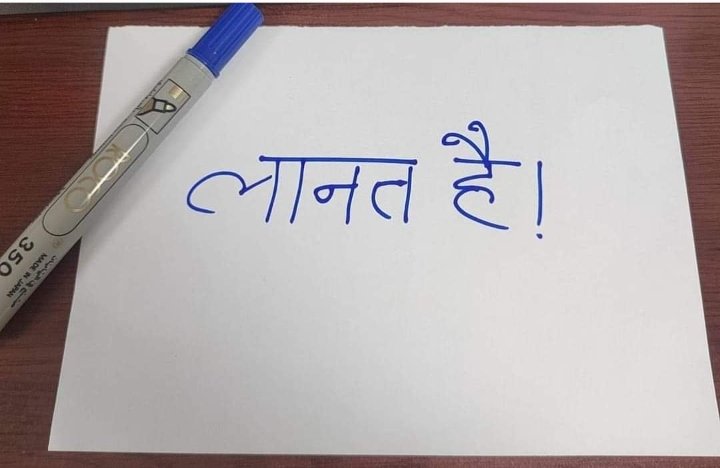 लानत है!
KOKO
350
MADE IN JAPAN